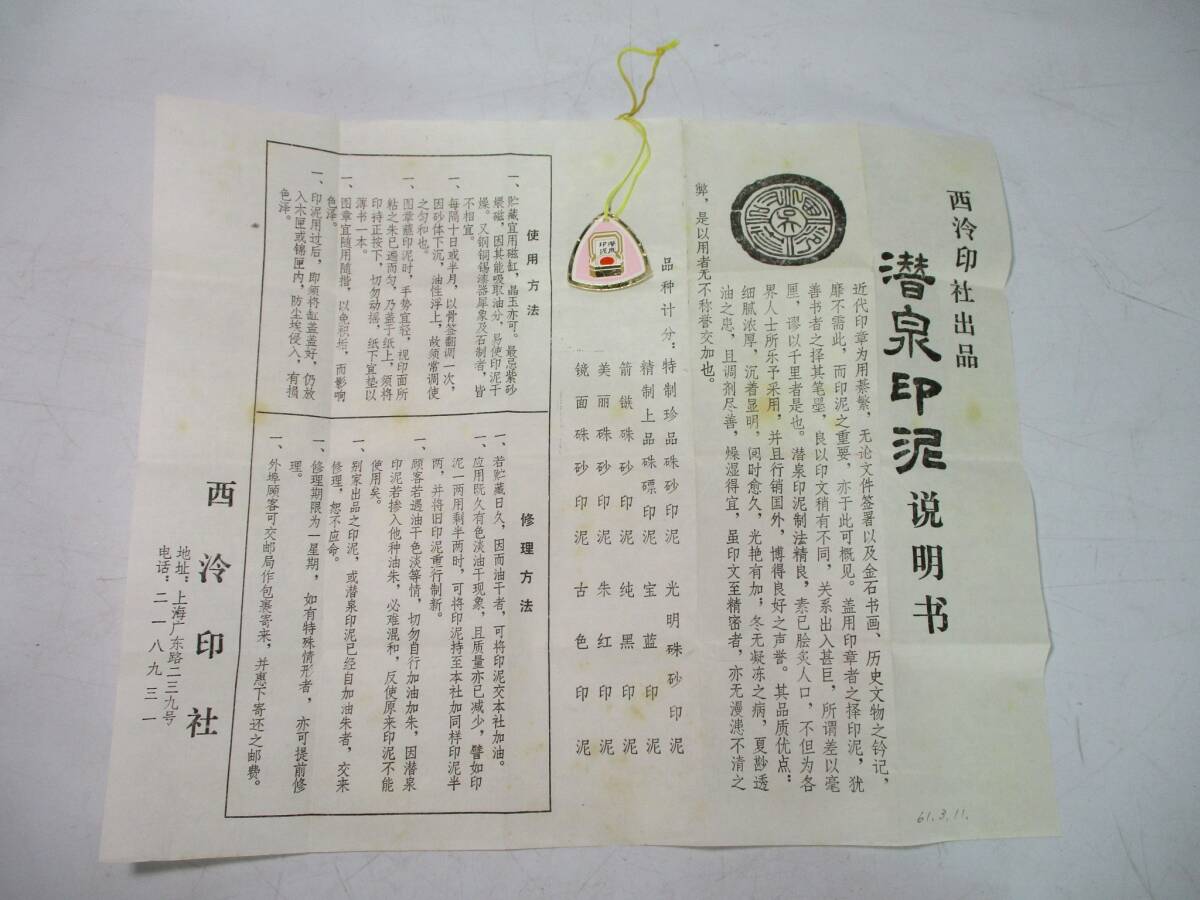 西泠印社出品
潜泉印泥说明书
近代印章为用綦繁，无论文件签署以及金石书画、历史文物之钤记，
靡不需此，而印泥之重要，亦于此可概见。盖用印章者之择印泥，犹
善书者之择其笔墨，良以印文稍有不同，关系出入甚巨，所谓差以毫
厘，谬以千里者是也。潜泉印泥制法精良，素已脍炙人口，不但为各
界人士所乐予采用，并且行销国外，博得良好之声誉。其品质优点：
细腻浓厚，沉着显明，阅时愈久，光艳有加，冬无凝冻之病，夏尠透
油之患，且调剂尽善，燥湿得宜，虽印文至精密者，亦无漫漶不清之
弊，是以用者无不称誉交加也。
品种计分：特制珍品硃砂印泥 光明硃砂印泥
精制上品硃磦印泥 宝蓝印泥
箭镞硃砂印泥 纯黑印泥
美丽硃砂印泥 朱红印泥
镜面硃砂印泥 古色印泥
潜泉印泥
使用方法
一、贮藏宜用磁缸，晶玉亦可。最忌紫砂
缎磁，因其能吸取油分，易使印泥干
燥。又铜钢锡漆器犀象及石制者，皆
不相宜。
一、每隔十日或半月，以骨签翻调一次，
因砂体下沉，油性浮上，故须常调使
之匀和也。
一、图章蘸印泥时，手势宜轻，视印面所
粘之朱已遍而匀，乃盖于纸上，须将
印持正按下，切勿动摇，纸下宜垫以
薄书一本。
一、图章宜随用随揩，以免积垢，而影响
色泽。
一、印泥用过后，即须将缸盖盖好，仍放
入木匣或锦匣内，防尘埃侵入，有损
色泽。
修理方法
一、若贮藏日久，因而油干者，可将印泥交本社加油。
一、应用既久有色淡油干现象，且质量亦已减少，譬如印
泥一两用剩半两时，可将印泥持至本社加同样印泥半
两，并将旧印泥重行制新。
一、顾客若遇油干色淡等情，切勿自行加油加朱，因潜泉
印泥若掺入他种油朱，必难混和，反使原来印泥不能
使用矣。
一、别家出品之印泥，或潜泉印泥已经自加油朱者，交来
修理，恕不应命。
一、修理期限为一星期，如有特殊情形者，亦可提前修
理。
一、外埠顾客可交邮局作包裹寄来，并惠下寄还之邮费。
西泠印社
地址：上海广东路二三九号
电话：二一八九三一
61.3.11.